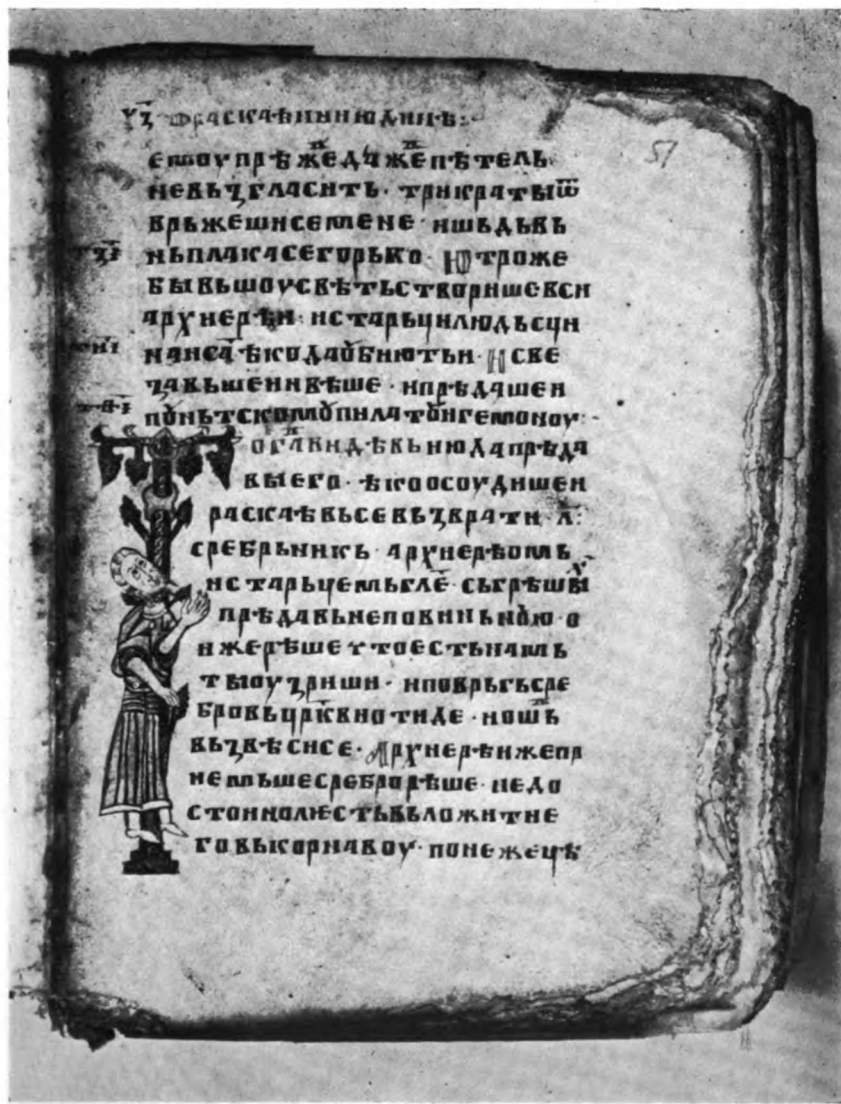 ѯ҃ѕ ѡраскаѣнинюдинѣ:
емоупрѣжедажепѣтель
невьꙁгласить · трикраты ѿ
врьжешисемене · ишьдьвь
ньплакасегорько · Ютроже
бывьшоусвѣтьствориш​евси
архиерѣи · истарьцилюдьсци
наисаѣкодаꙋбиютьи · Исве
ꙁавьшеиивѣше · ипрѣдашеи
поньтскомꙋпилатꙋигемоноу :·
огдавидѣвьиюдапрѣда
выего · ѣкоосоудишеи
раскаѣвьсевьꙁврати л҃:
сребрьникь · архиерѣомь
истарьцемьгл҃е · сьгрѣшихь
прѣдавьнеповиньнꙋю · о
нижерѣшечтоестьнамь
тыоуꙁриши · иповрьгьсре
бровьцрк҃виотиде · ишь
вьꙁвѣсисе · Архиерѣижепр
иемьшесреброрѣше · недо
стоинолиестьвьложитие
говькорнавоу · понежецѣ
57